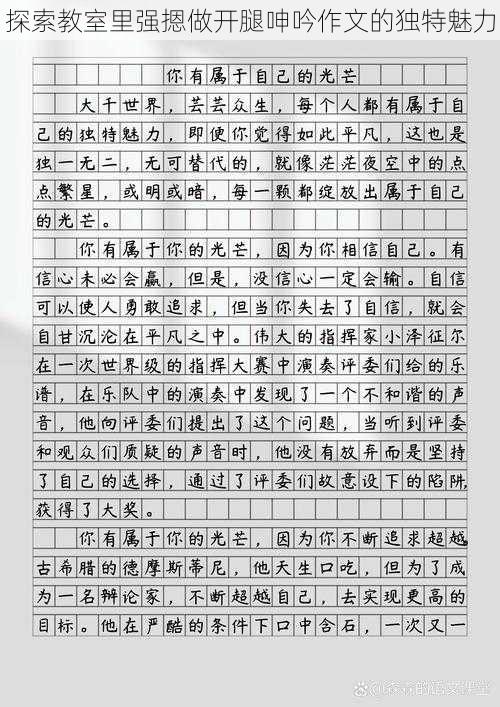 探索教室里强摁做开腿呻吟作文的独特魅力
你有属于自己的光芒
大千世界，芸芸众生，每个人都有属于自
己的独特魅力，即使你觉得如此平凡，这也是
独一无二，无可替代的，就像茫茫夜空中的点
点繁星，或明或暗，每一颗都绽放出属于自己
的光芒。
你有属于你的光芒，因为你相信自己。有
信心未必会赢，但是，没信心一定会输。自信
可以使人勇敢追求，但当你失去了自信，就会
自甘沉沦在平凡之中。伟大的指挥家小泽征尔
在一次世界级的指挥大赛中演奏评委们给的乐
谱，在乐队中的演奏中发现了一个不和谐的声
音，他向评委们提出了这个问题，当听到评委
和观众们质疑的声音时，他没有放弃而是坚持
了自己的选择，通过了评委们故意设下的陷阱，
获得了大奖。
你有属于你的光芒，因为你不断追求超越。
古希腊的德摩斯蒂尼，他天生口吃，但为了成
为一名辩论家，不断超越自己，去实现更高的
目标。他在严酷的条件下口中含石，一次又一